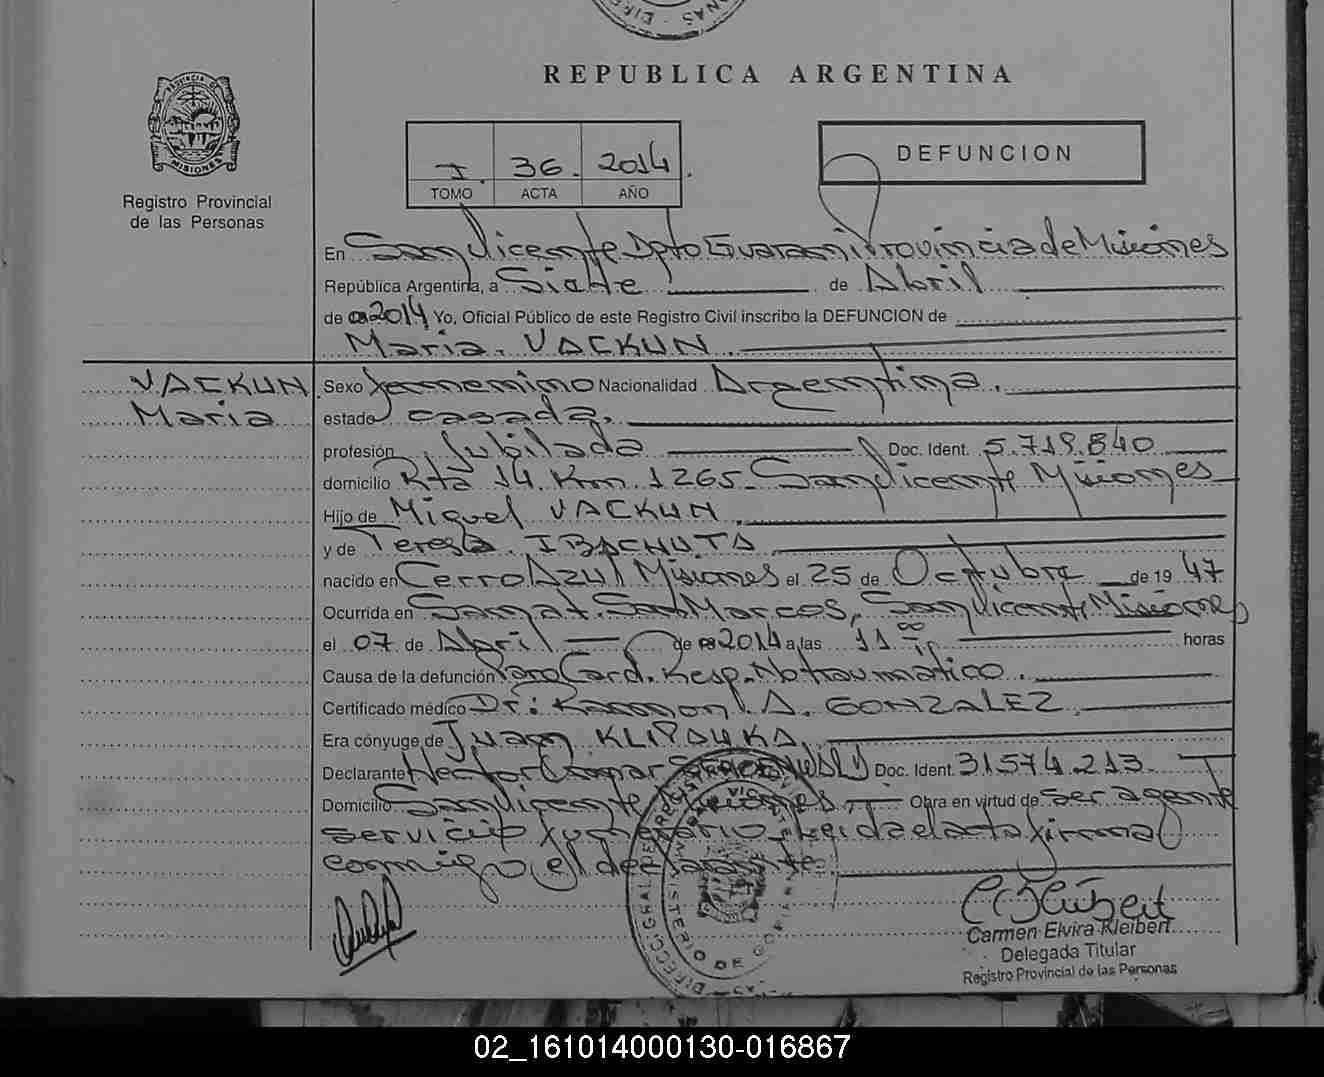 REPUBLICA ARGENTINA
PROVINCIA DE
MISIONES
Registro Provincial
de las Personas
I. 36. 2014.
TOMO ACTA AÑO
DEFUNCION
En San Vicente Dpto Guarani Provincia de Misiones
República Argentina, a Siete de Abril
de 2014 Yo, Oficial Público de este Registro Civil inscribo la DEFUNCION de
Maria. VACKUN.
VACKUN
Maria
Sexo femenino Nacionalidad Argentina.
estado casada,
profesión Jubilada Doc. Ident. 5.719.840
domicilio Rta 14. Km. 1265. San Vicente Misiones
Hijo de Miguel VACKUN
y de Teresa. IBACHUTA
nacido en Cerro Azul Misiones el 25 de Octubre de 19 47
Ocurrida en Sanat. San Marcos, San Vicente Misiones
el 07 de Abril de 2014 a las 11 00 horas
Causa de la defunción Paro Card. Resp. No traumatico.
Certificado médico Dr: Ramon. A. GONZALEZ.
Era cónyuge de Juan KLIPAUKA,
Declarante Hector Omar Doc. Ident. 31574.213.
Domicilio San Vicente Misiones, Obra en virtud de ser agente
servicio funerario. Leida el acta firma
conmigo el declarante.
Carmen Elvira Kleibert
Delegada Titular
Registro Provincial de las Personas
02_161014000130-016867